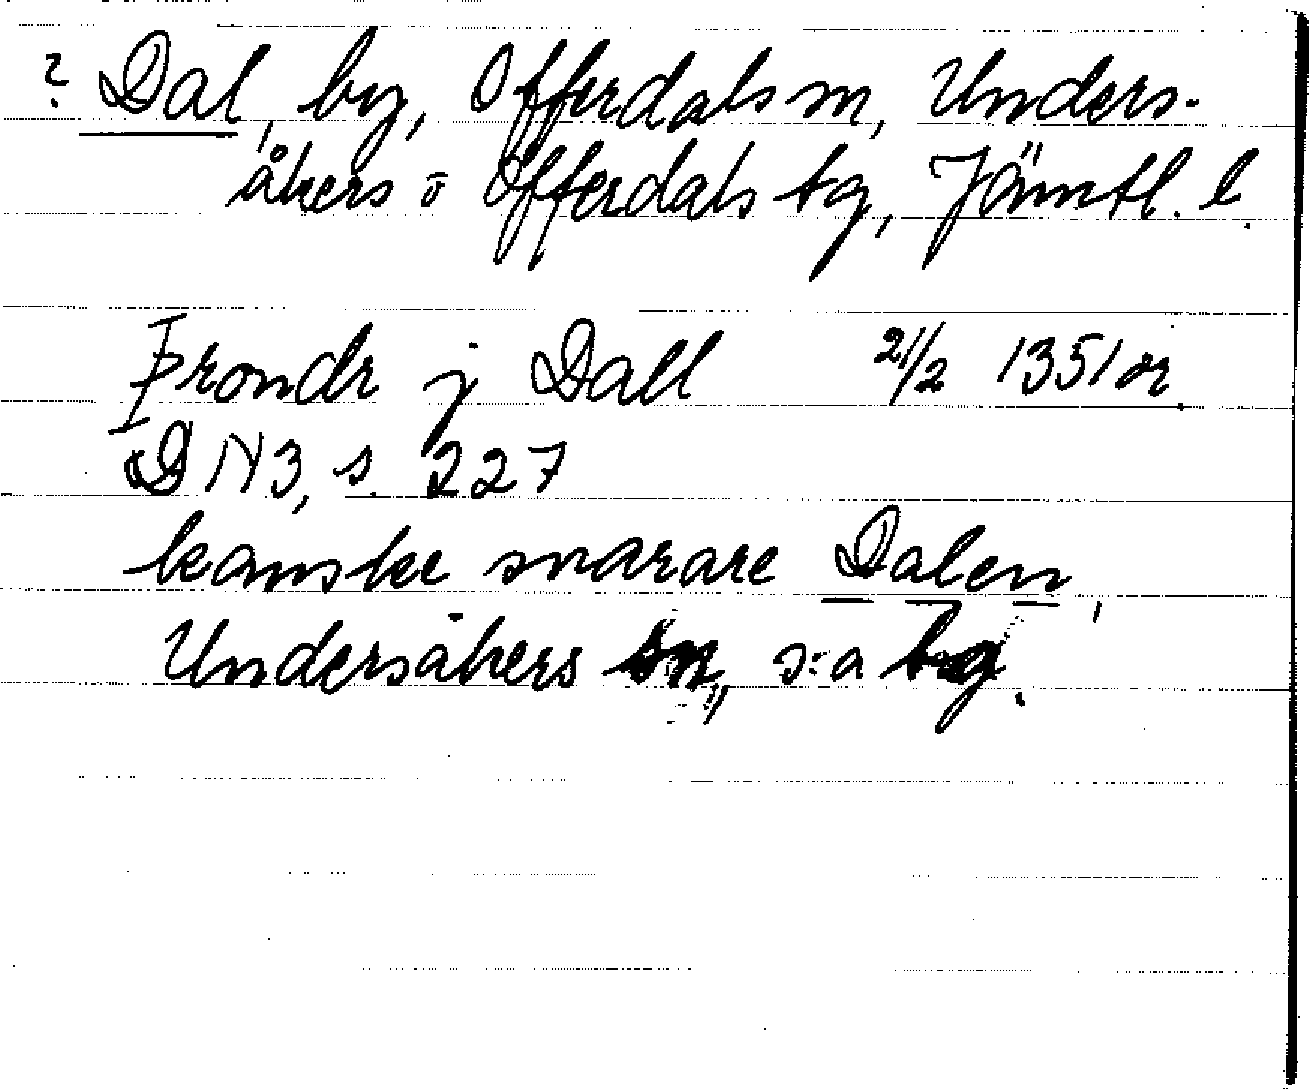 ? Dal, by, Offerdals sn, Unders-
åkers o Offerdals tg, Jämtl. l.
Þrondr j Dall 21/2 1351 or.
DN 3, s. 227
kanske snarare Dalen,
Undersåkers sn, s:a tg.